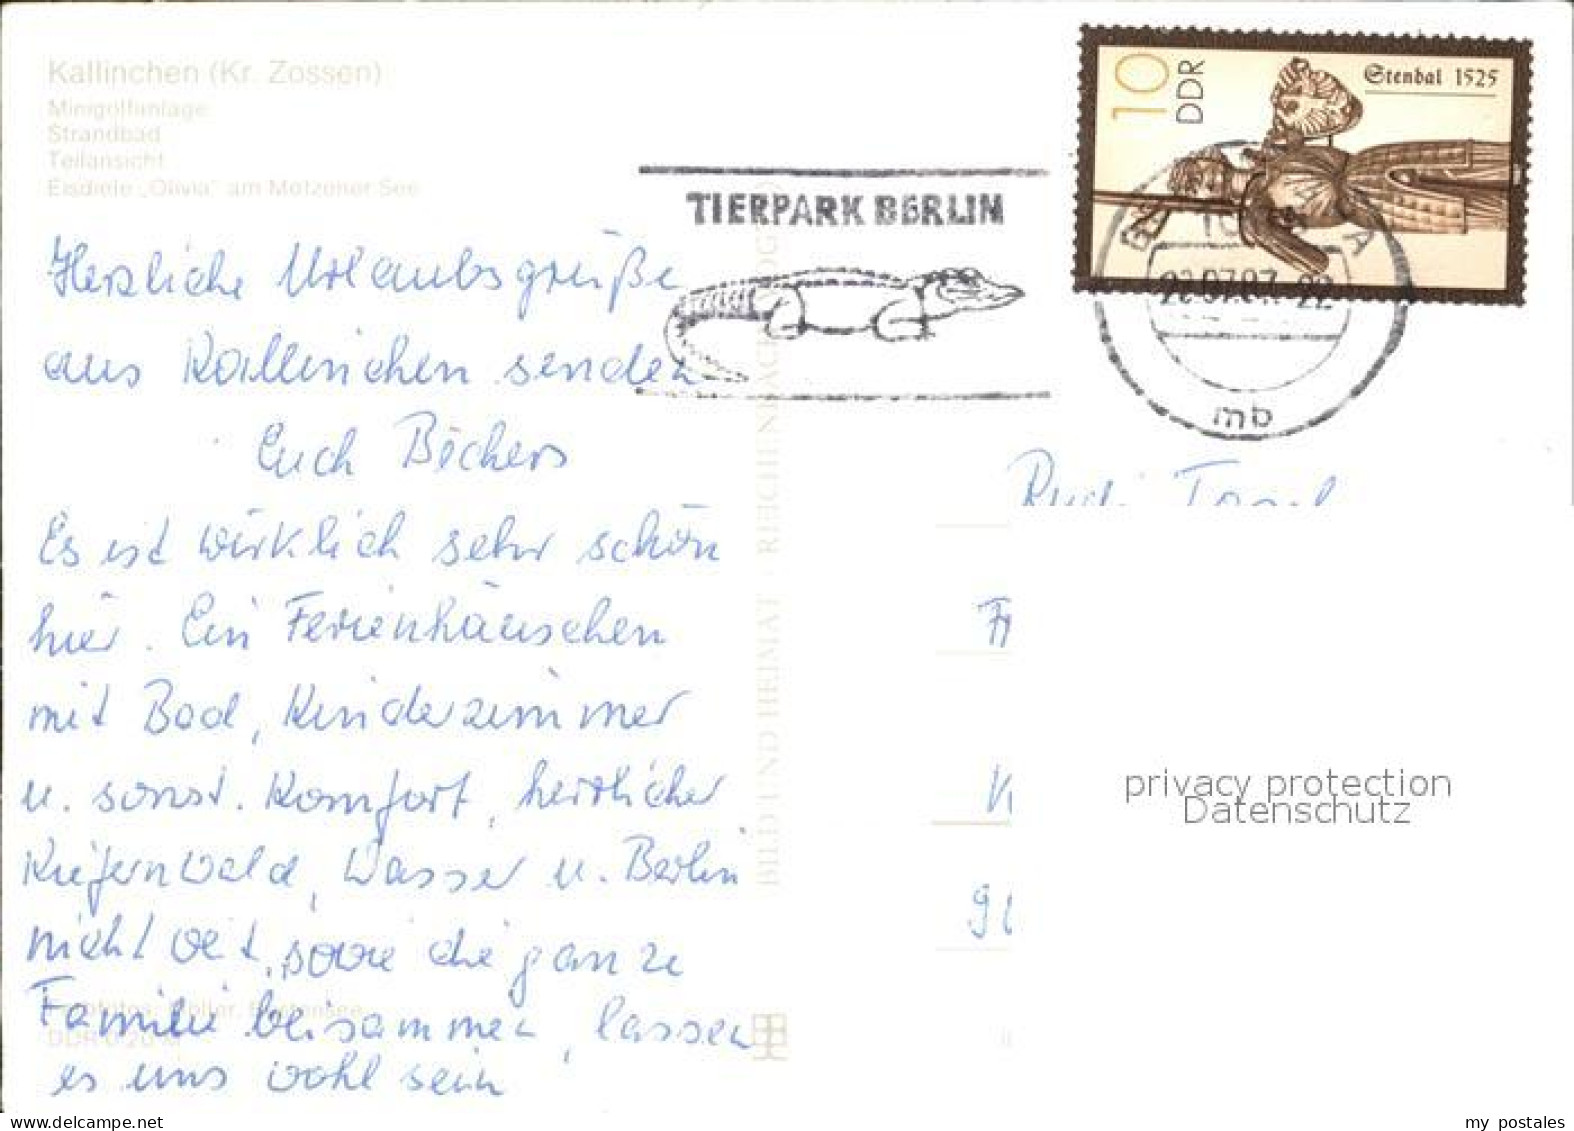 Kallinchen (Kr. Zossen)
Minigolfanlage
Strandbad
Teilansicht
Eisdiele „Olivia" am Motzener See
TIERPARK BERLIN
10
DDR
Stendal 1525
22
mb
Herzliche Urlaubsgrüße
aus Kallinchen senden
Euch Bechers
Es ist wirklich sehr schön
hier. Ein Ferienhäuschen
mit Bad, Kinderzimmer
u. sonst. Komfort, herrlicher
Kiefernwald, Wasser u. Berlin
nicht weit, sowie die ganze
Familie beisammen, lassen
es uns wohl sein
BILD UND HEIMAT · REICHENBACH
DDR 0,20 M
Rudi
privacy protection
Datenschutz
www.delcampe.net
my postales